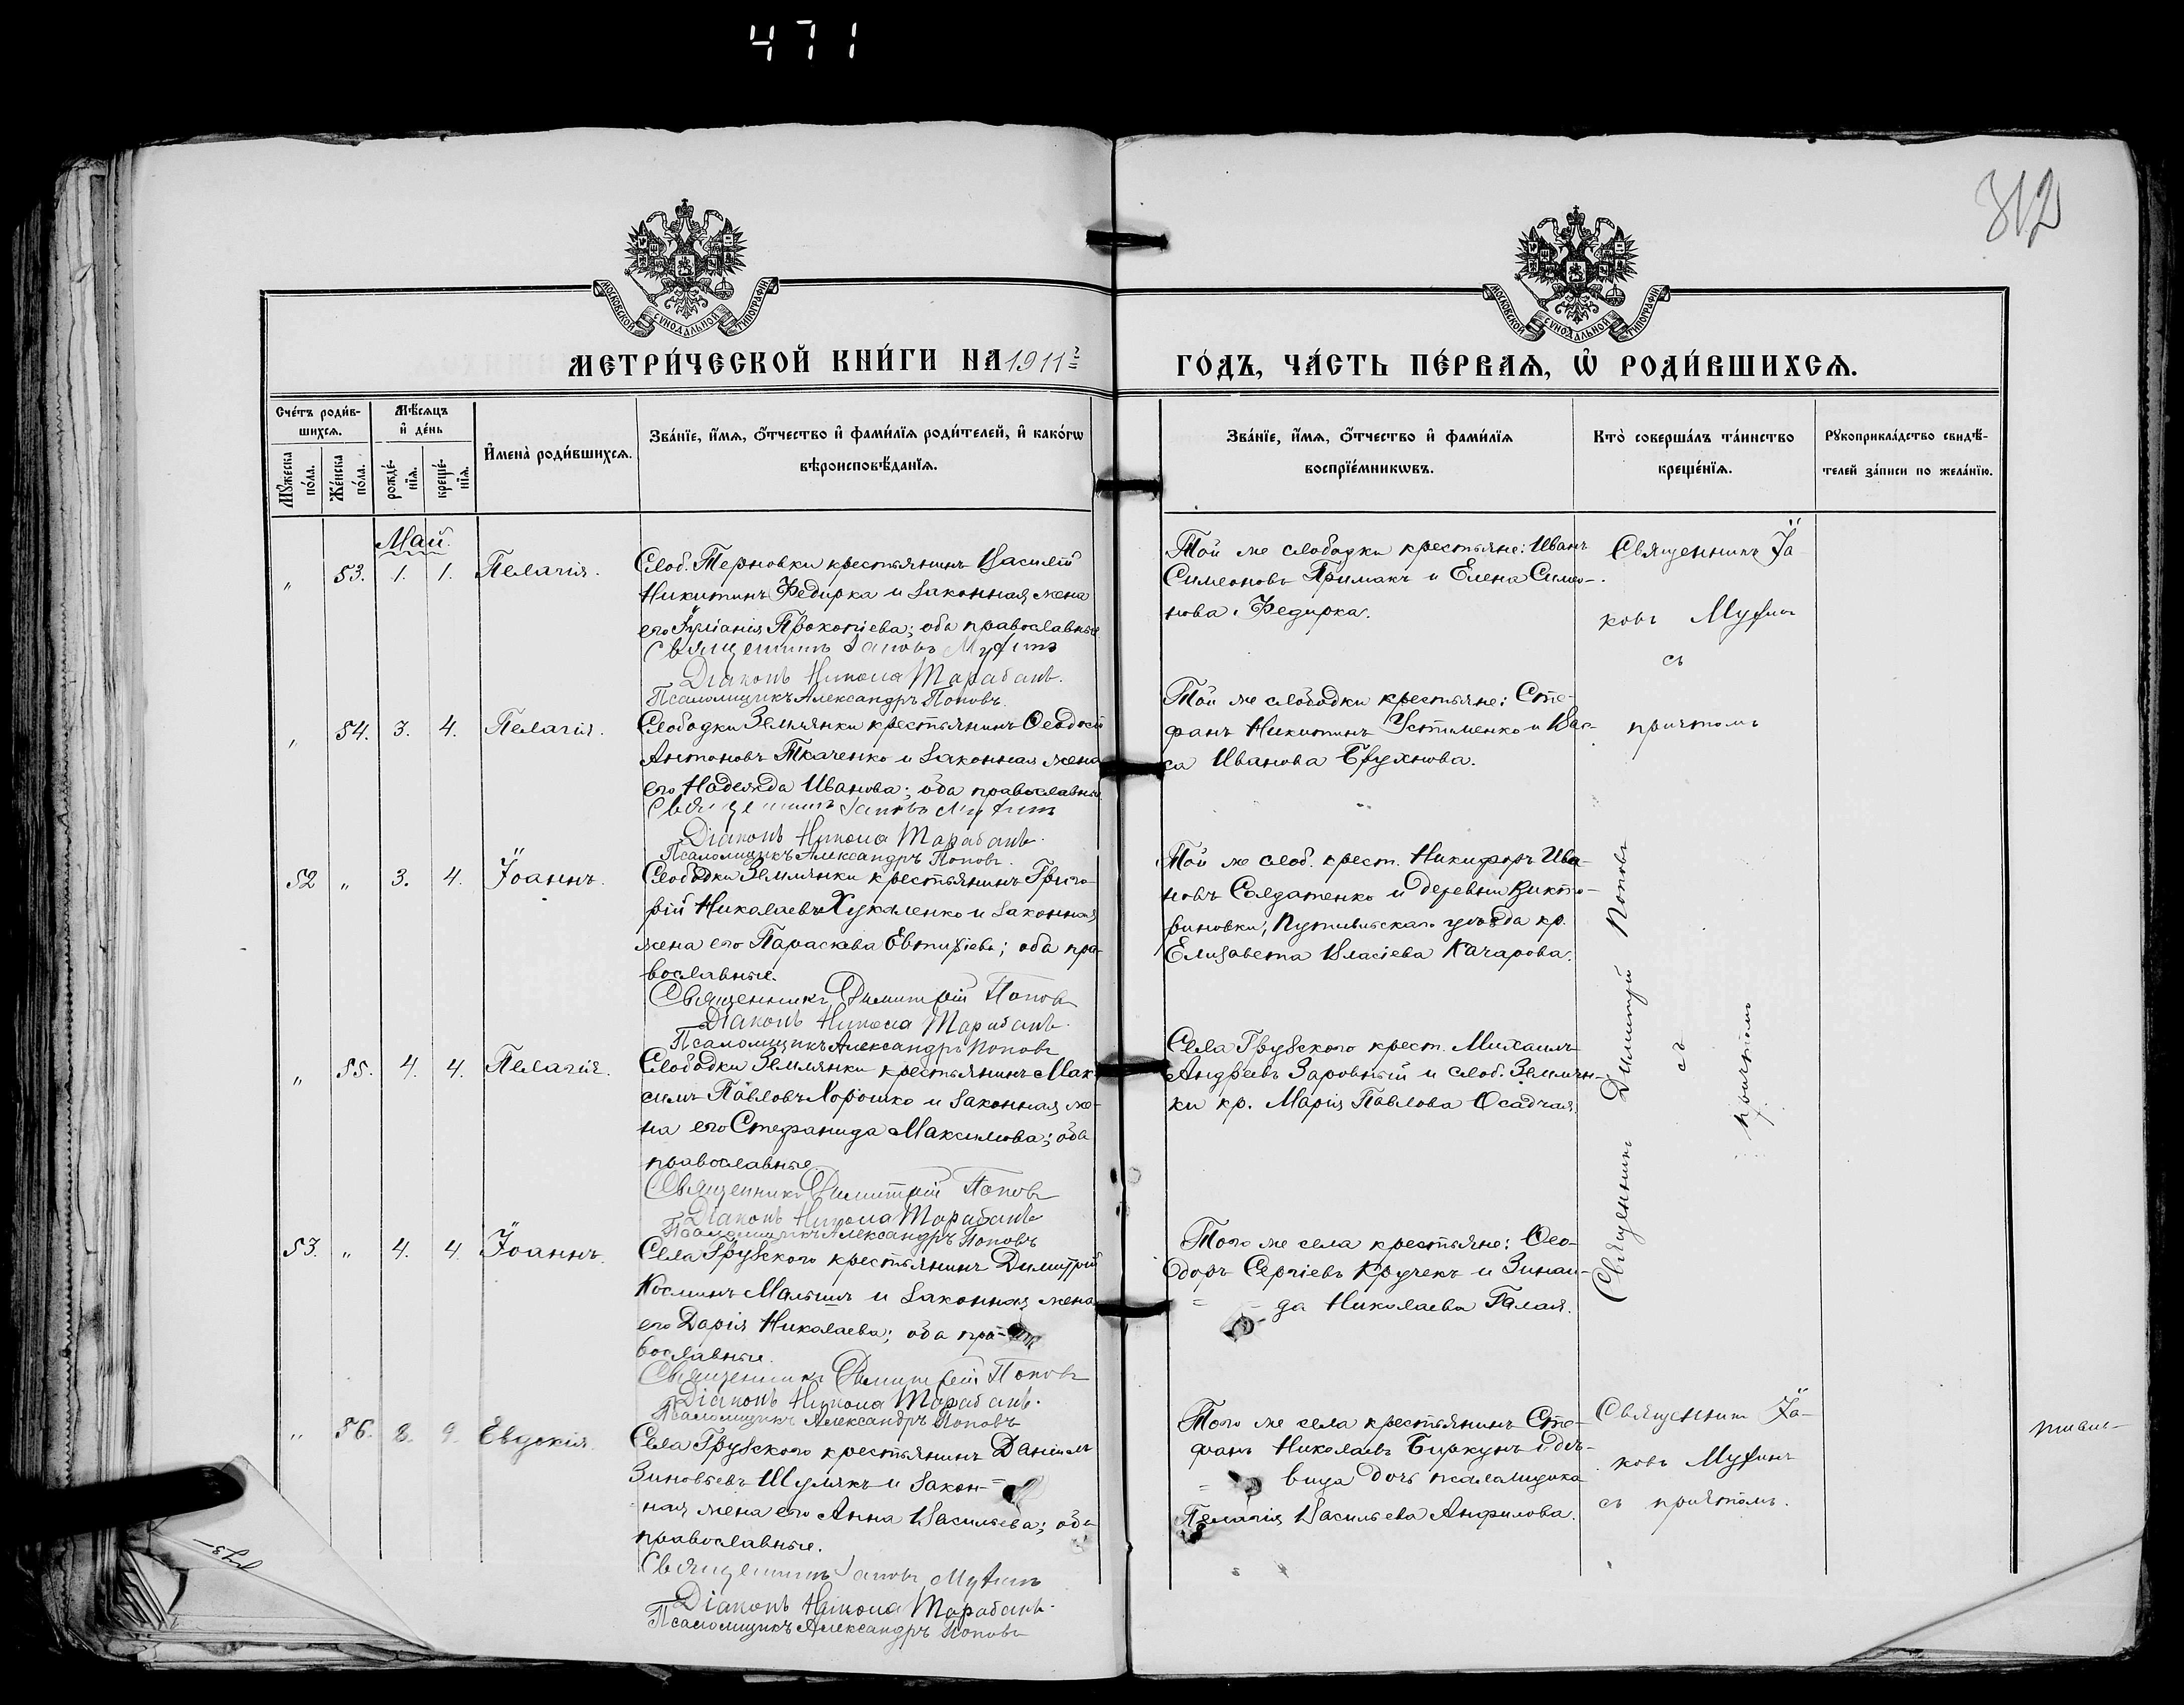 471
312
МОСКОВСКОЙ СѴНОДАЛЬНОЙ ТИПОГРАФІИ
МОСКОВСКОЙ СѴНОДАЛЬНОЙ ТИПОГРАФІИ
МЕТРИ́ЧЕСКОЙ КНИ́ГИ НА 1911 г.
ГО́ДЪ, ЧА́СТЬ ПЕ́РВАѦ, Ѡ҆ РОДИ́ВШИХСѦ.
Сче́тъ роди́в-
шихсѧ.
Мꙋ́жеска
по́ла.
Же́нска
по́ла.
Мѣ́сѧцъ
и҆ де́нь
рожде́-
нїѧ.
креще́-
нїѧ.
И҆мена̀ роди́вшихсѧ.
Зва́нїе, и҆́мѧ, ѻ҆́тчество и҆ фами́лїѧ роди́телей, и҆ како́гѡ
вѣроисповѣ́данїѧ.
Зва́нїе, и҆́мѧ, ѻ҆́тчество и҆ фами́лїѧ
воспрїе́мникѡвъ.
Кто̀ соверша́лъ та́инство
креще́нїѧ.
Рꙋкоприкла́дство свидѣ́-
телей за́писи по жела́нїю.
Май.
" 53. 1. 1. Пелагія.
Слоб. Терновки крестьянинъ Василій
Никитинъ Федирка и законная жена
его Іуліанія Прокопіева; оба православные
Священникъ Іаковъ Муфинъ
Діаконъ Никола Марабанъ.
Псаломщикъ Александръ Поповъ.
Той же слободки крестьяне: Иванъ
Симеоновъ Примакъ и Елена Симео-
нова Федирка.
Священникъ Іа-
ковъ Муфинъ
съ
причтомъ
" 54. 3. 4. Пелагія.
Слободки Землянки крестьянинъ Ѳеодосій
Антоновъ Ткаченко и законная жена
его Надежда Иванова; оба православные
Священникъ Іаковъ Муфинъ
Діаконъ Никола Марабанъ.
Псаломщикъ Александръ Поповъ.
Той же слободки крестьяне: Сте-
фанъ Никитинъ Устименко и Вас-
са Иванова Брухнова.
52 " 3. 4. Іоаннъ.
Слободки Землянки крестьянинъ Григо-
рій Николаевъ Хукаленко и законная
жена его Параскева Евтихіева; оба пра-
вославные.
Священникъ Димитрій Поповъ
Діаконъ Никола Марабанъ.
Псаломщикъ Александръ Поповъ
Той же слоб. крест. Никифоръ Ива-
новъ Солдатенко и деревни Викто-
риновки, Путивльскаго уѣзда кр.
Елизавета Власіева Качарова.
Священникъ Димитрій Поповъ
съ
причтомъ
" 55. 4. 4. Пелагія.
Слободки Землянки крестьянинъ Мак-
симъ Павловъ Хорошко и законная же-
на его Стефанида Максимова; оба
православные.
Священникъ Димитрій Поповъ
Діаконъ Никола Марабанъ
Псаломщикъ Александръ Поповъ
Села Грузского крест. Михаилъ
Андреевъ Заровный и слоб. Землян-
ки кр. Марія Павлова Осадчая.
53. " 4. 4 Іоаннъ.
Села Грузского крестьянинъ Димитрій
Косминъ Малышъ и законная жена
его Дарія Николаева; оба пра-
вославные.
Священникъ Димитрій Поповъ
Діаконъ Никола Марабанъ.
Псаломщикъ Александръ Поповъ
Того же села крестьяне: Ѳео-
доръ Сергіевъ Кручекъ и Зинаи-
да Николаева Галая.
" 56. 8. 9. Евдокія.
Села Грузского крестьянинъ Даніилъ
Зиновьевъ Шулякъ и закон-
ная жена его Анна Васильева; оба
православные.
Священникъ Іаковъ Муфинъ
Діаконъ Никола Марабанъ.
Псаломщикъ Александръ Поповъ
Того же села крестьянинъ Сте-
фанъ Николаевъ Биркунъ и дѣ-
вица дочь псаломщика
Пелагія Васильева Анфилова.
Священникъ Іа-
ковъ Муфинъ
съ причтомъ.